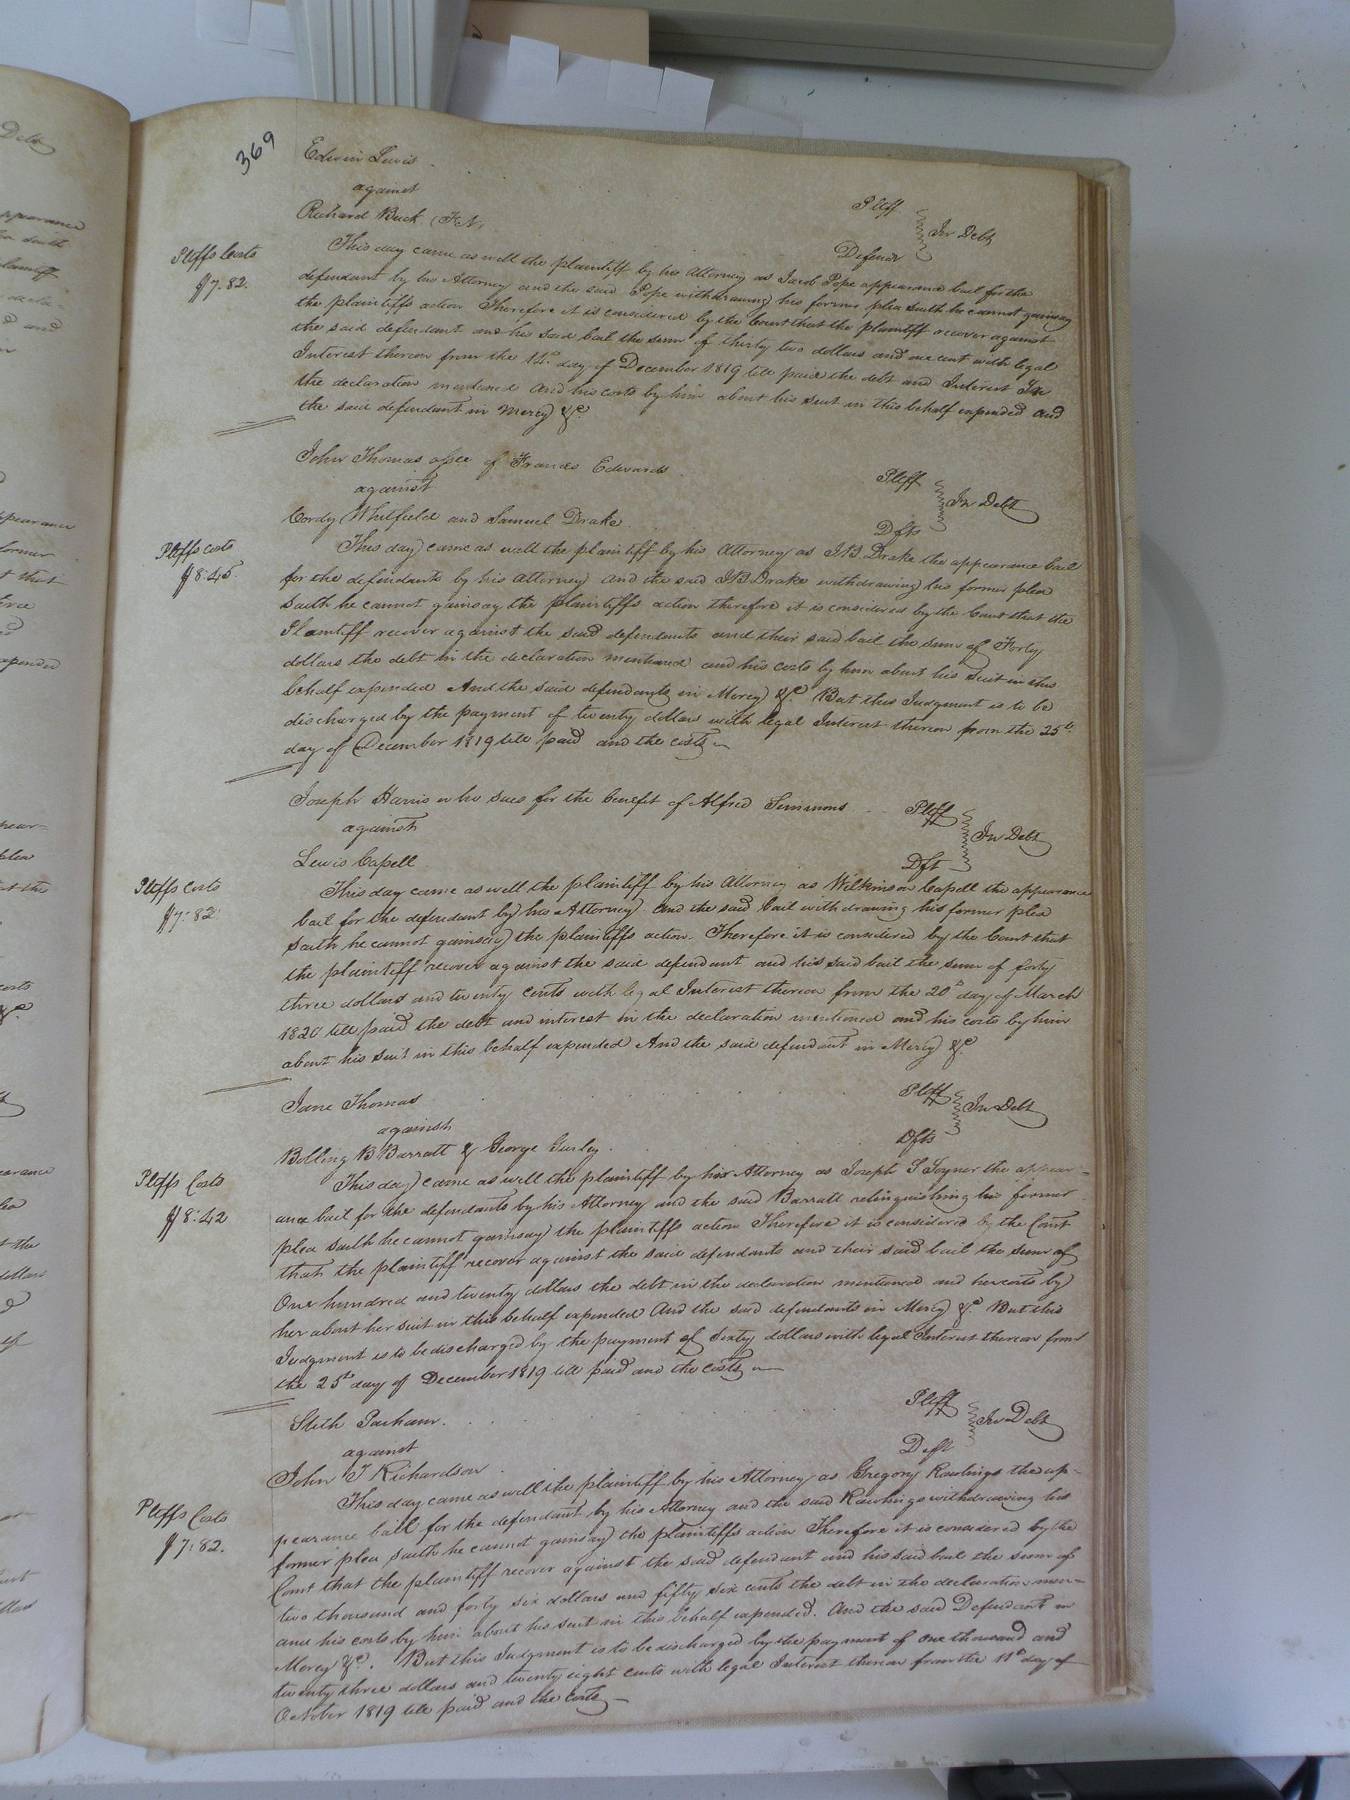 369
Edwin Lewis
against
Richard Buck (FN)
Pltff
Defend
In Debt
Pltffs Costs
$7.82.
This day came as well the plaintiff by his Attorney as Jacob Pope appearance bail for the
defendant by his Attorney and the said Pope withdrawing his former plea saith he cannot gainsay
the plaintiffs action Therefore it is considered by the Court that the plaintiff recover against
the said defendant and his said bail the sum of thirty two dollars and one cent with legal
Interest thereon from the day of December 1819 till paid the debt and Interest In
the declaration mentioned And his costs by him about his suit in this behalf expended and
the said defendant in mercy &c
John Thomas assee of Frances Edwards
against
Cordy Whitfield and Samuel Drake
Pltff
Dfts
In Debt
Pltffs costs
$8:45.
This day came as well the plaintiff by his Attorney as Drake the appearance bail
for the defendants by his attorney and the said Drake withdrawing his former plea
saith he cannot gainsay the plaintiffs action therefore it is considered by the Court that the
Plaintiff recover against the said defendants and their said bail the sum of Forty
dollars the debt in the declaration mentioned and his costs by him about his suit in this
behalf expended And the said defendants in Mercy &c But this Judgment is to be
discharged by the payment of twenty dollars with legal Interest thereon from the 25th
day of December 1819 till paid and the costs
Joseph Harris who sues for the benefit of Alfred Simmons
against
Lewis Capell
Pltff
Dft
In Debt
Pltffs Costs
$7:82
This day came as well the plaintiff by his Attorney as Wilkinson Capell the appearance
bail for the defendant by his Attorney and the said bail withdrawing his former plea
saith he cannot gainsay the plaintiffs action. Therefore it is considered by the Court that
the plaintiff recover against the said defendant and his said bail the sum of forty
three dollars and twenty cents with legal Interest thereon from the 20th day of March
1820 till paid the debt and interest in the declaration mentioned and his costs by him
about his suit in this behalf expended And the said defendant in Mercy &c
Jane Thomas
against
Bolling B Barratt & George Gurley
Pltff
Dfts
In Debt
Pltffs Costs
$8:42
This day came as well the plaintiff by his Attorney as Joseph S Joyner the appear-
ance bail for the defendants by his Attorney and the said Barratt relinquishing his former
plea saith he cannot gainsay the plaintiffs action Therefore it is considered by the Court
that the plaintiff recover against the said defendants and their said bail the sum of
One hundred and twenty dollars the debt in the declaration mentioned and her costs by
her about her suit in this behalf expended And the said defendants in Mercy &c But this
Judgment is to be discharged by the payment of sixty dollars with legal Interest thereon from
the 25th day of December 1819 till paid and the costs
Stith Parham.
against
John T Richardson
Pltff
Deft
In Debt
Pltffs Costs
$7:82.
This day came as well the plaintiff by his Attorney as Gregory Rawlings the ap-
pearance bail for the defendant by his Attorney and the said Rawlings withdrawing his
former plea saith he cannot gainsay the plaintiffs action Therefore it is considered by the
Court that the plaintiff recover against the said defendant and his said bail the sum of
two thousand and forty six dollars and fifty six cents the debt in the declaration men-
and his costs by him about his suit in this behalf expended. And the said Defendant in
Mercy &c. But this Judgment is to be discharged by the payment of one thousand and
twenty three dollars and twenty eight cents with legal Interest thereon from the 11th day of
October 1819 till paid and the costs